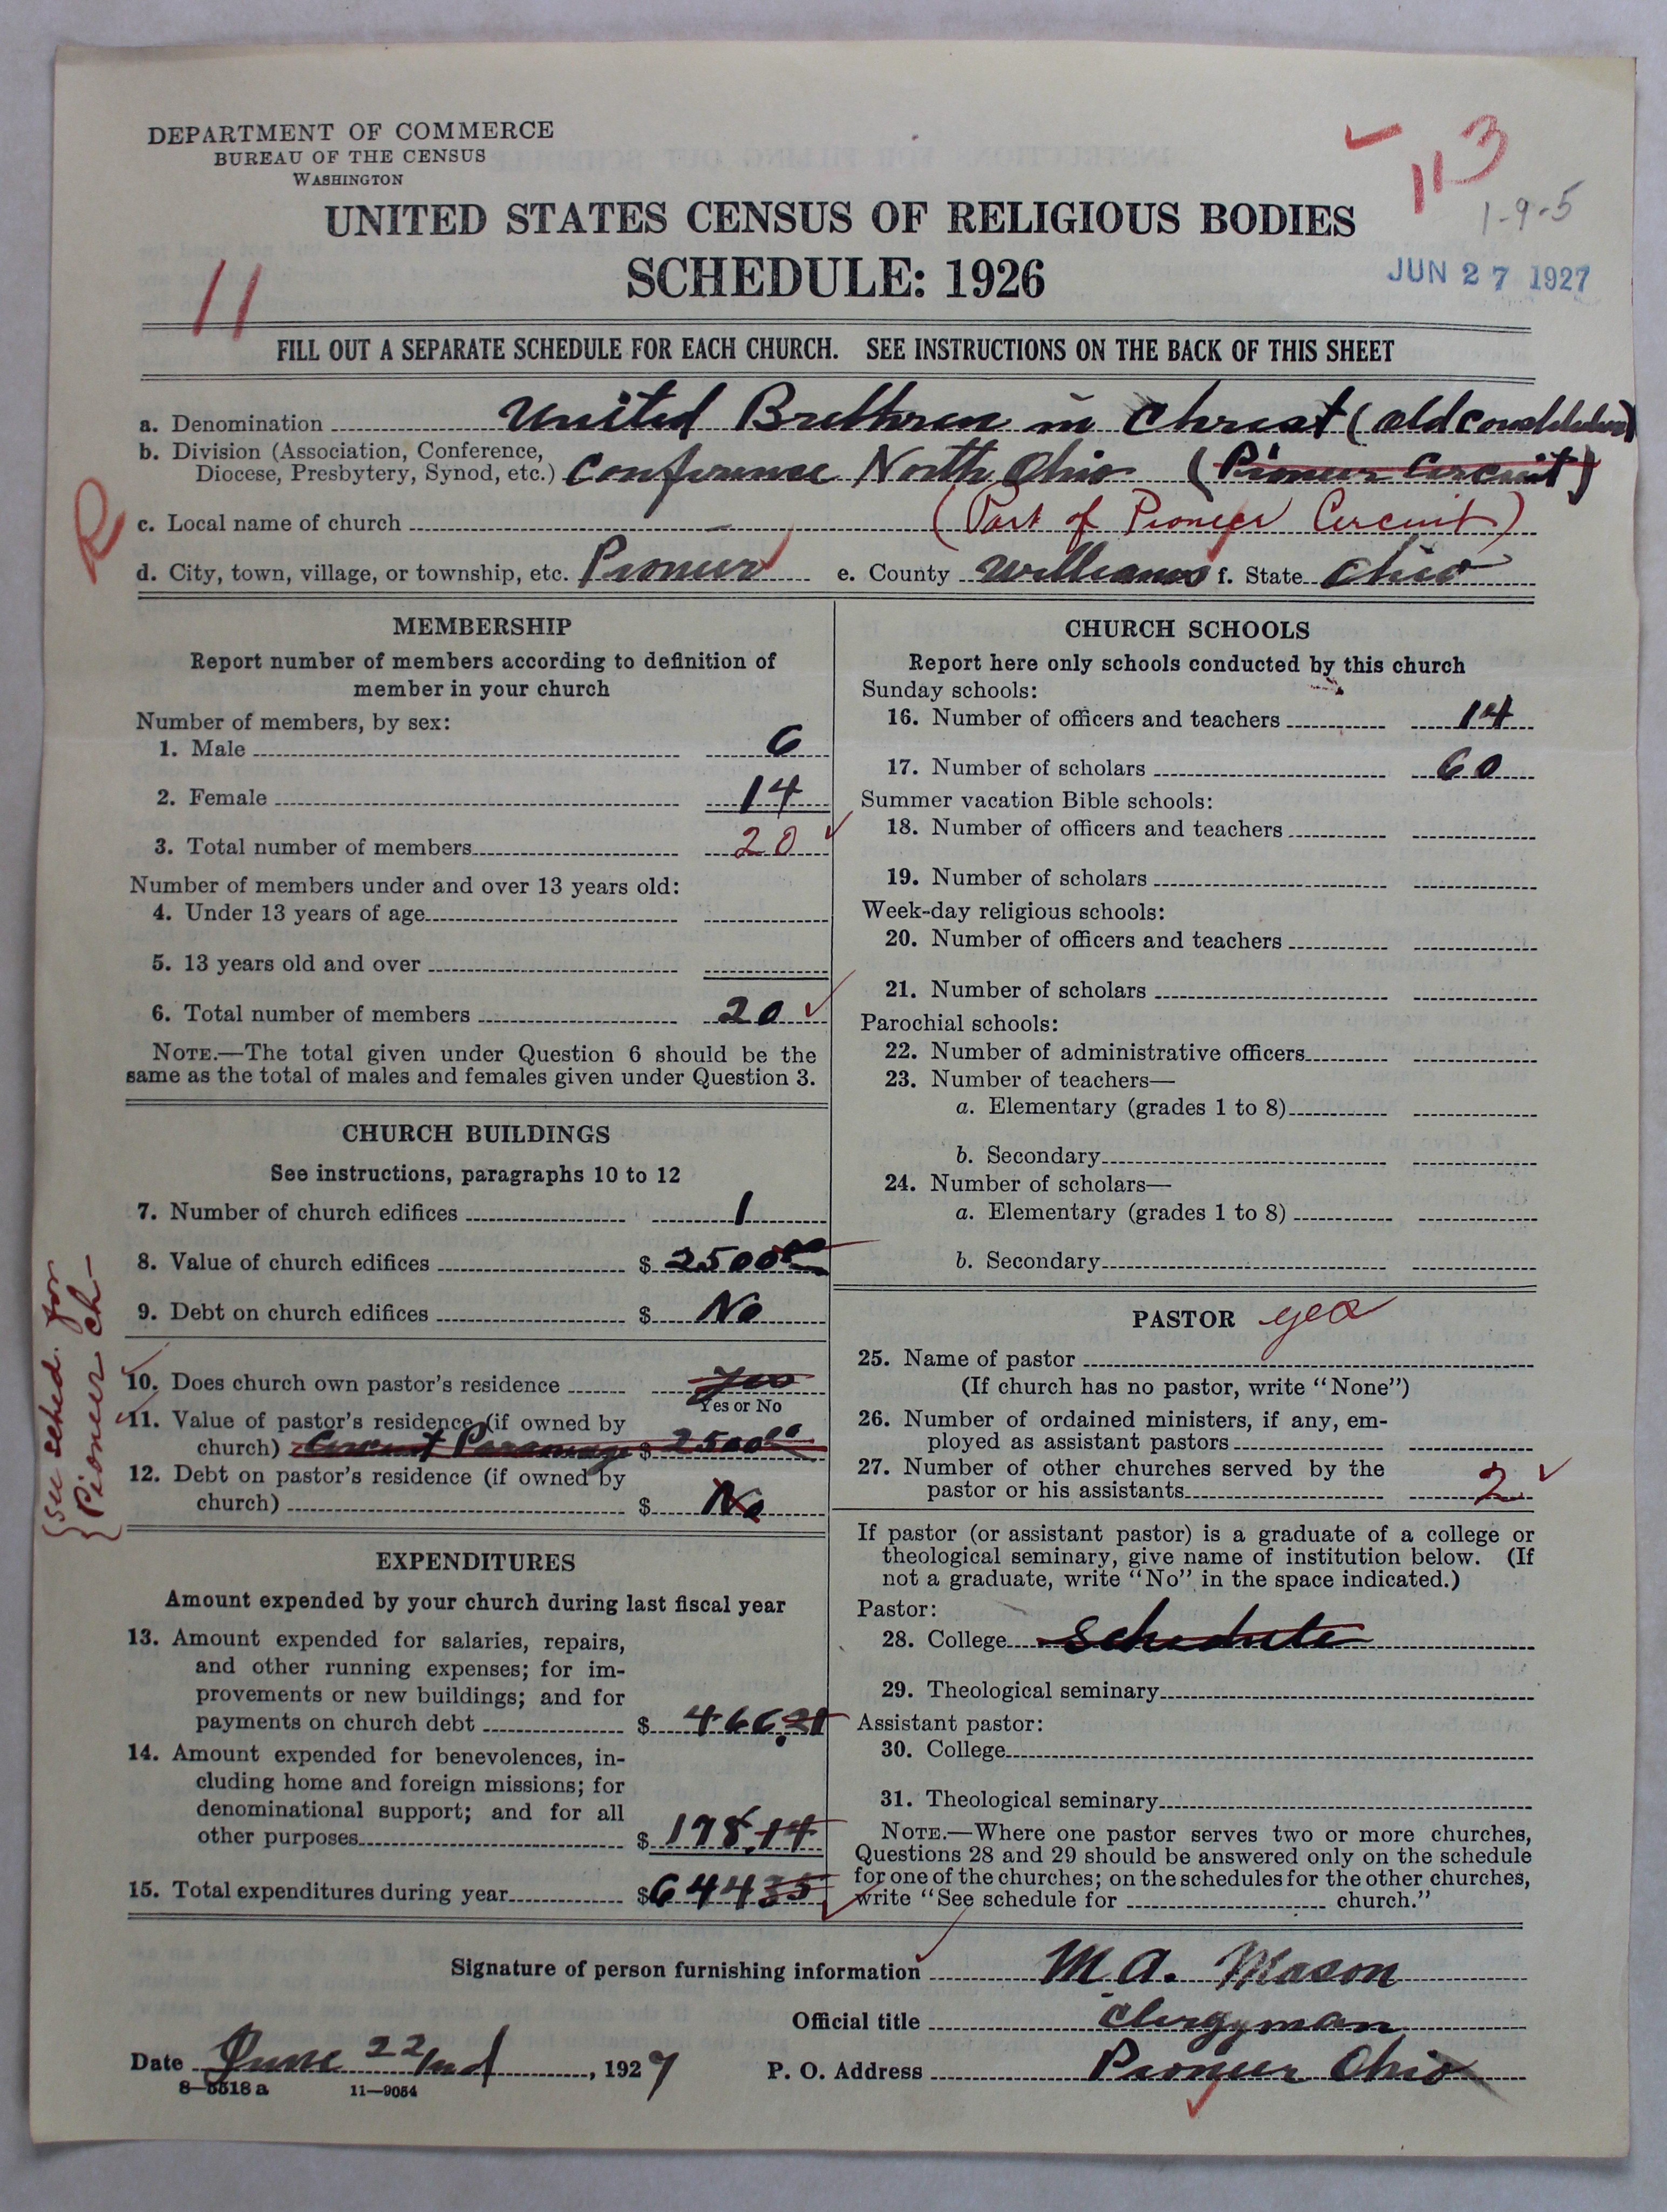 DEPARTMENT OF COMMERCE
BUREAU OF THE CENSUS
WASHINGTON
113
1-9-5
UNITED STATES CENSUS OF RELIGIOUS BODIES
SCHEDULE: 1926
JUN 27 1927
11
FILL OUT A SEPARATE SCHEDULE FOR EACH CHURCH. SEE INSTRUCTIONS ON THE BACK OF THIS SHEET
a. Denomination United Brethren in Christ (old
b. Division (Association, Conference,
Diocese, Presbytery, Synod, etc.) Conference North Ohio (Pioneer Circuit)
R
c. Local name of church (Part of Pioneer Circuit)
d. City, town, village, or township, etc. Pioneer e. County Williams f. State Ohio
MEMBERSHIP
Report number of members according to definition of
member in your church
Number of members, by sex:
1. Male 6
2. Female 14
3. Total number of members 20
Number of members under and over 13 years old:
4. Under 13 years of age
5. 13 years old and over
6. Total number of members 20
NOTE.—The total given under Question 6 should be the
same as the total of males and females given under Question 3.
CHURCH BUILDINGS
See instructions, paragraphs 10 to 12
7. Number of church edifices 1
8. Value of church edifices $ 2500 00
9. Debt on church edifices $ No
10. Does church own pastor's residence Yes
Yes or No
11. Value of pastor's residence (if owned by
church) Circuit Parsonage $ 2500 00
12. Debt on pastor's residence (if owned by
church) $ No
{See sched. for
{Pioneer Ch-
EXPENDITURES
Amount expended by your church during last fiscal year
13. Amount expended for salaries, repairs,
and other running expenses; for im-
provements or new buildings; and for
payments on church debt $ 466.21
14. Amount expended for benevolences, in-
cluding home and foreign missions; for
denominational support; and for all
other purposes $ 178.14
15. Total expenditures during year $ 644 35
CHURCH SCHOOLS
Report here only schools conducted by this church
Sunday schools:
16. Number of officers and teachers 14
17. Number of scholars 60
Summer vacation Bible schools:
18. Number of officers and teachers
19. Number of scholars
Week-day religious schools:
20. Number of officers and teachers
21. Number of scholars
Parochial schools:
22. Number of administrative officers
23. Number of teachers—
a. Elementary (grades 1 to 8)
b. Secondary
24. Number of scholars—
a. Elementary (grades 1 to 8)
b. Secondary
PASTOR yes
25. Name of pastor
(If church has no pastor, write "None")
26. Number of ordained ministers, if any, em-
ployed as assistant pastors
27. Number of other churches served by the
pastor or his assistants 2
If pastor (or assistant pastor) is a graduate of a college or
theological seminary, give name of institution below. (If
not a graduate, write "No" in the space indicated.)
Pastor:
28. College schedule
29. Theological seminary
Assistant pastor:
30. College
31. Theological seminary
NOTE.—Where one pastor serves two or more churches,
Questions 28 and 29 should be answered only on the schedule
for one of the churches; on the schedules for the other churches,
write "See schedule for church."
Signature of person furnishing information M. A. Mason
Official title Clergyman
Date June 22nd, 1927 P. O. Address Pioneer Ohio
8-5518a 11-9054